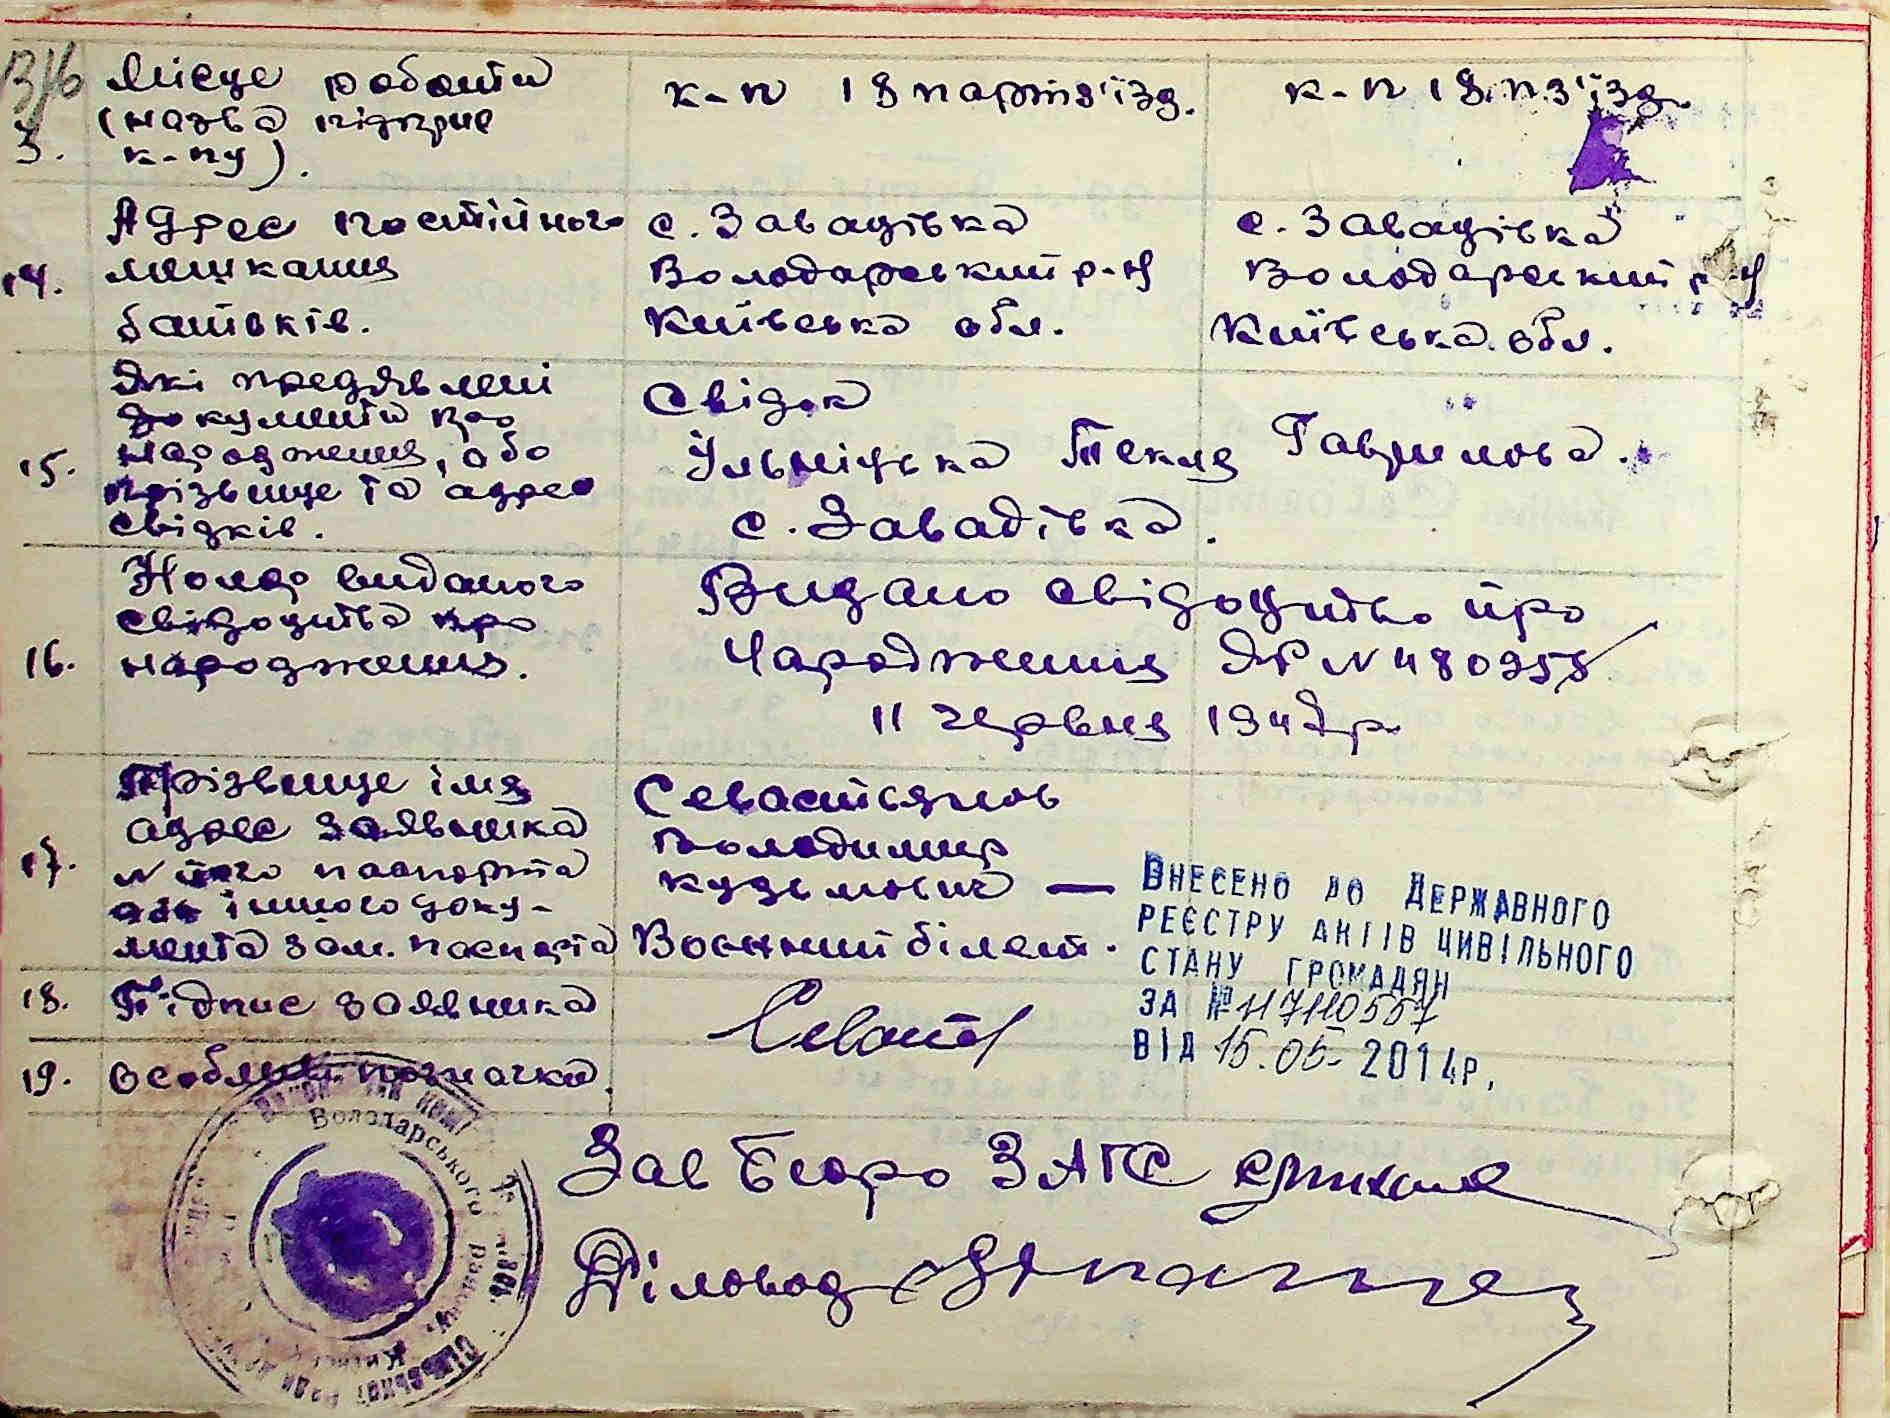 Місце роботи
(назва підприє
к-пу).
к-п 18 партз'їзд.
к-п 18 п.з'їзд.
3.
14.
Адрес постійного
мешкання
батьків.
с. Завадівка
Володарський р-н
Київська обл.
с. Завадівка
Володарський р-н
Київська обл.
15.
Які предявлені
документи про
народження, або
прізвище та адрес
свідків.
Свідок
Ульніцька Текля Гаврилова.
с. Завадівка.
16.
Номер виданого
свідоцтва про
народження.
Видано свідоцтво про
Народження ЯР N 480958
11 червня 1947р.
17.
Прізвище імя
адрес заявника
N його паспорта
або іншого доку-
мента зам. паспорта
Севастьянов
Володимир
Кузьмович —
Воєнний білет.
ВНЕСЕНО ДО ДЕРЖАВНОГО
РЕЄСТРУ АКТІВ ЦИВІЛЬНОГО
СТАНУ ГРОМАДЯН
ЗА № 117110557
ВІД 15.05. 2014р.
18.
Підпис заявника
19.
Особливі позначки.
Володарського району, Київської
Сільської Ради
Зав Бюро ЗАГС
Діловод